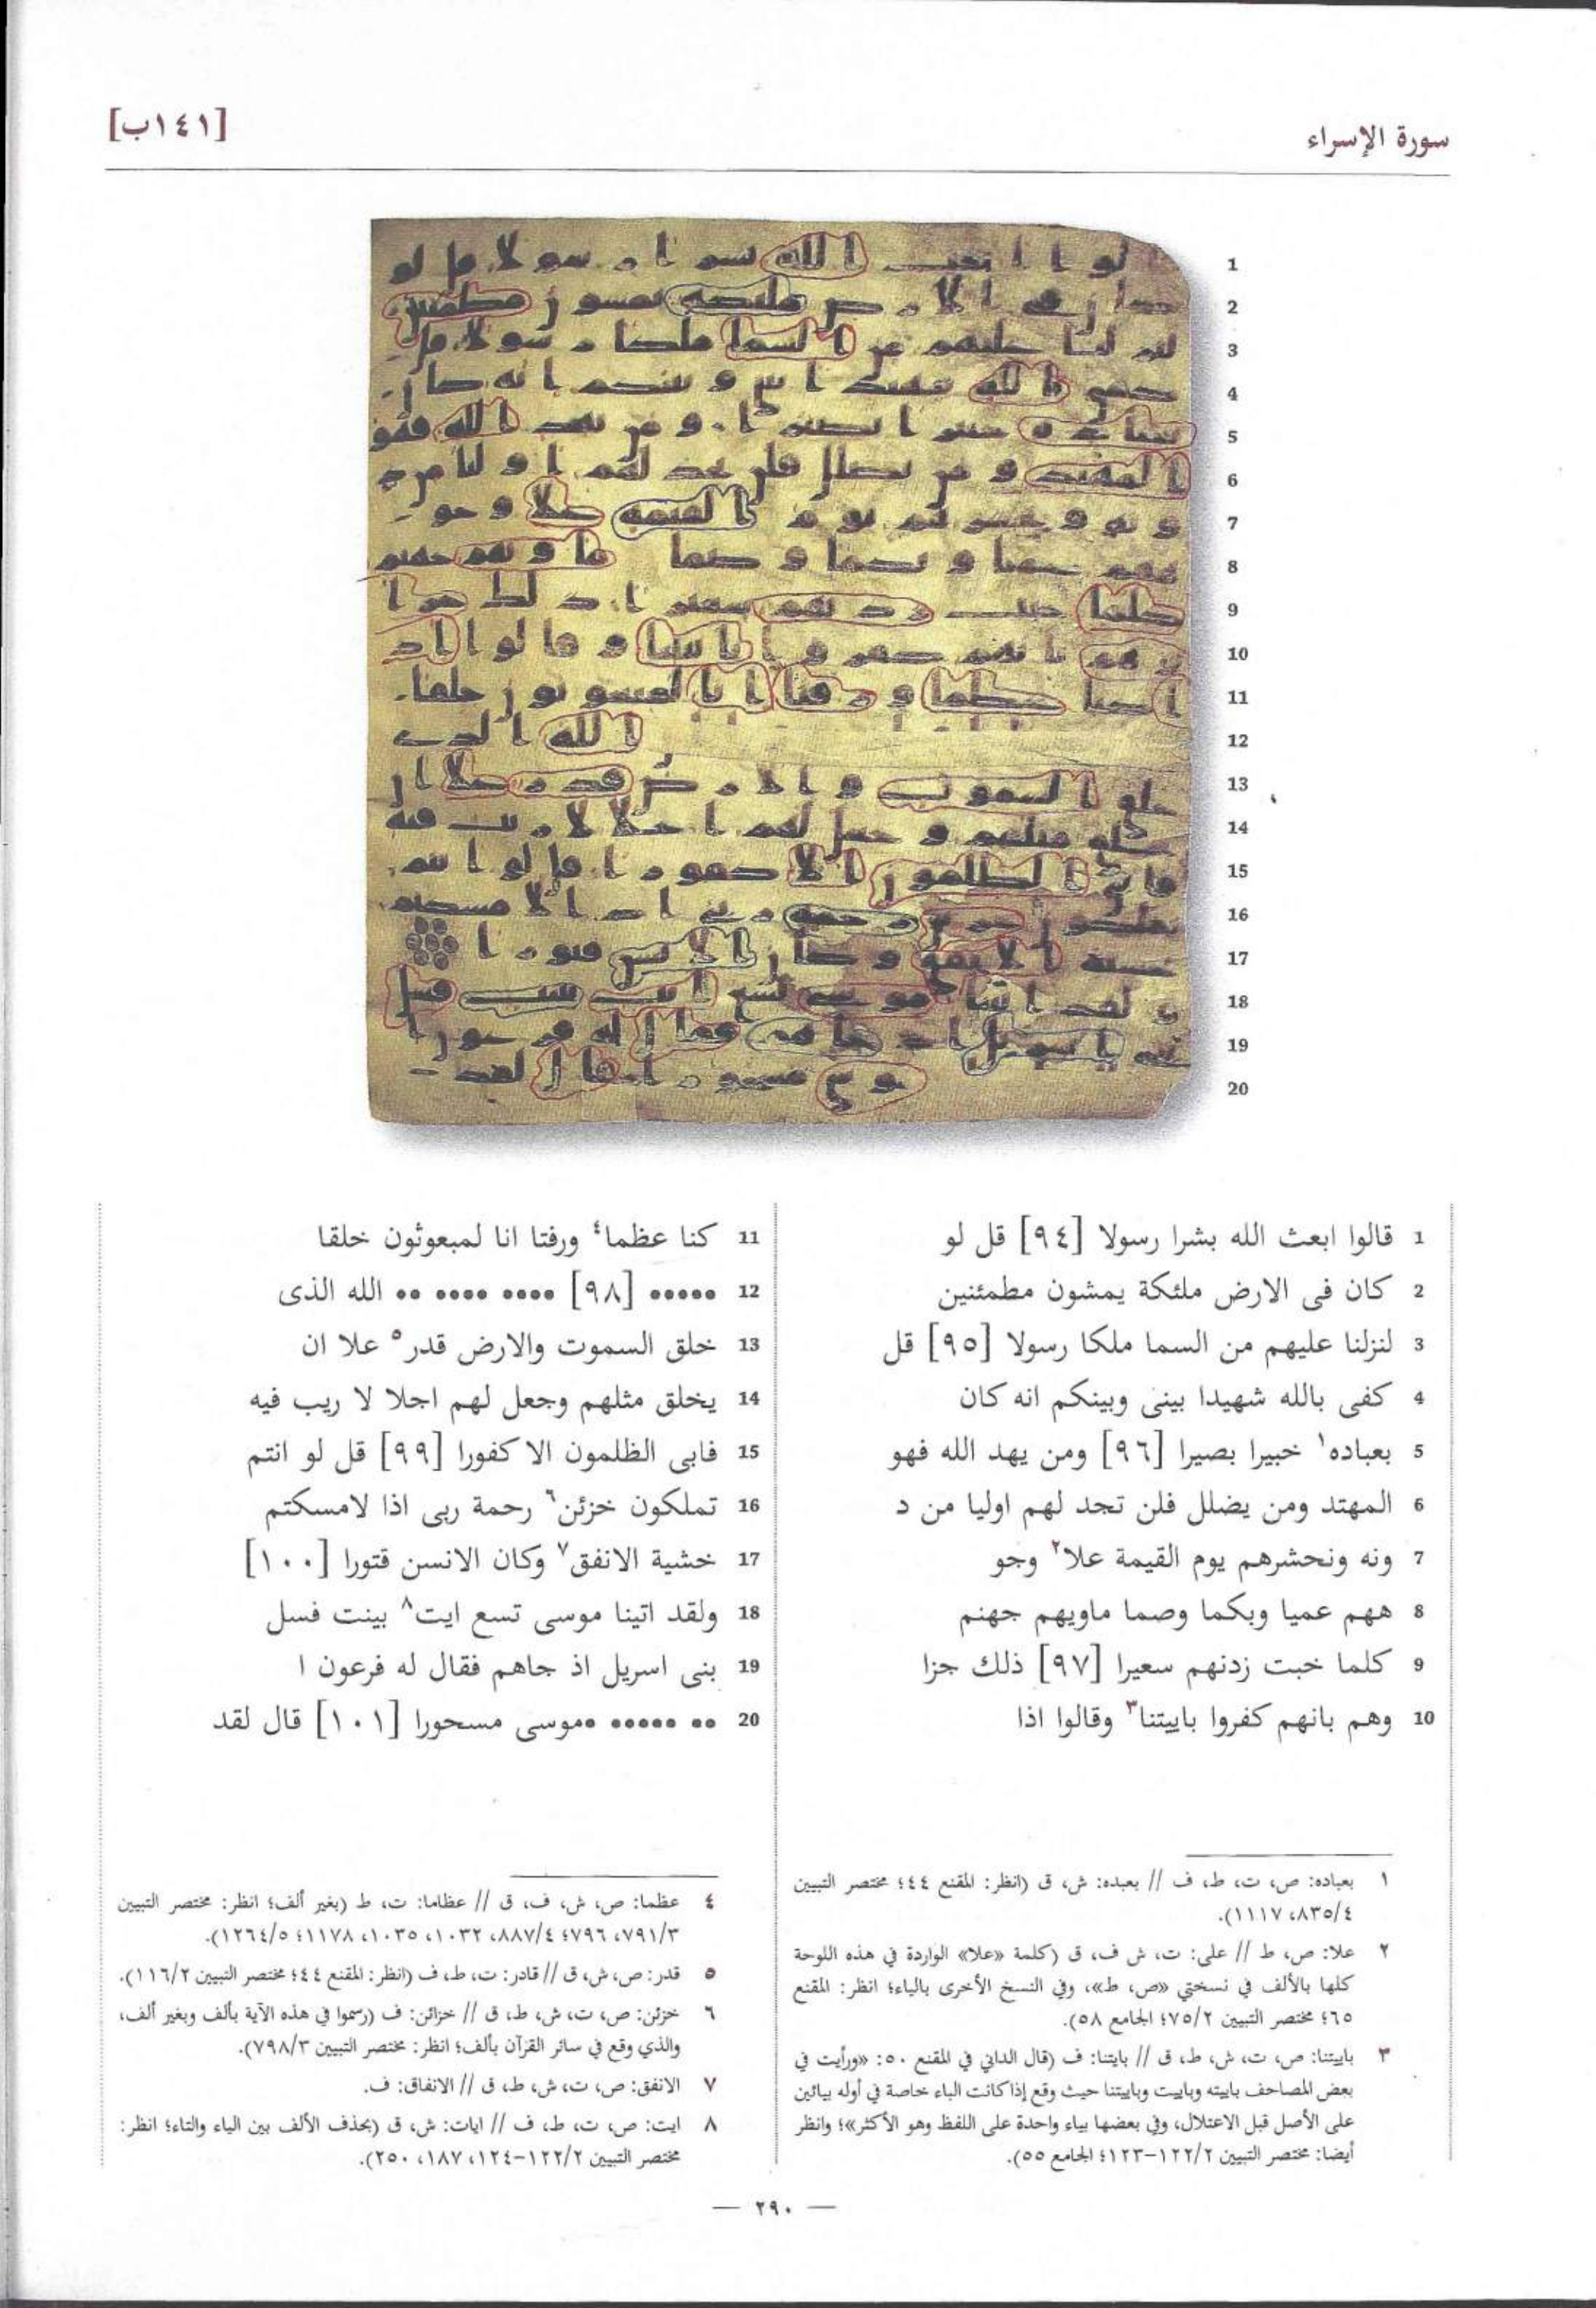 سورة الإسراء
[١٤١ب]
1 قالوا ابعث الله بشرا رسولا [٩٤] قل لو
2 كان فى الارض ملئكة يمشون مطمئنين
3 لنزلنا عليهم من السما ملكا رسولا [٩٥] قل
4 كفى بالله شهيدا بينى وبينكم انه كان
5 بعباده١ خبيرا بصيرا [٩٦] ومن يهد الله فهو
6 المهتد ومن يضلل فلن تجد لهم اوليا من د
7 ونه ونحشرهم يوم القيمة علا٢ وجو
8 ههم عميا وبكما وصما ماويهم جهنم
9 كلما خبت زدنهم سعيرا [٩٧] ذلك جزا
10 وهم بانهم كفروا باييتنا٣ وقالوا اذا
11 كنا عظما٤ ورفتا انا لمبعوثون خلقا
12 ••••• [٩٨] •••• •••• •• الله الذى
13 خلق السموت والارض قدر٥ علا ان
14 يخلق مثلهم وجعل لهم اجلا لا ريب فيه
15 فابى الظلمون الا كفورا [٩٩] قل لو انتم
16 تملكون خزئن٦ رحمة ربى اذا لامسكتم
17 خشية الانفق٧ وكان الانسن قتورا [١٠٠]
18 ولقد اتينا موسى تسع ايت٨ بينت فسل
19 بنى اسريل اذ جاهم فقال له فرعون ا
20 •• ••••• •موسى مسحورا [١٠١] قال لقد
١ بعباده: ص، ت، ط، ف // بعبده: ش، ق (انظر: المقنع ٤٤؛ مختصر التبيين
٨٣٥/٤، ١١١٧).
٢ علا: ص، ط // على: ت، ش ف، ق (كلمة «علا» الواردة في هذه اللوحة
كلها بالألف في نسختي «ص، ط»، وفي النسخ الأخرى بالياء؛ انظر: المقنع
٦٥؛ مختصر التبيين ٧٥/٢؛ الجامع ٥٨).
٣ باييتنا: ص، ت، ش، ط، ق // بايتنا: ف (قال الداني في المقنع ٥٠: «ورأيت في
بعض المصاحف باييته وباييت وباييتنا حيث وقع إذا كانت الباء خاصة في أوله بيائين
على الأصل قبل الاعتلال، وفي بعضها بياء واحدة على اللفظ وهو الأكثر»؛ وانظر
أيضا: مختصر التبيين ١٢٢/٢-١٢٣؛ الجامع ٥٥).
٤ عظما: ص، ش، ف، ق // عظاما: ت، ط (بغير ألف؛ انظر: مختصر التبيين
٧٩١/٣، ٧٩٦؛ ٨٨٧/٤، ١٠٣٢، ١٠٣٥، ١١٧٨؛ ١٢٦٤/٥).
٥ قدر: ص، ش، ق // قادر: ت، ط، ف (انظر: المقنع ٤٤؛ مختصر التبيين ١١٦/٢).
٦ خزئن: ص، ت، ش، ط، ق // خزائن: ف (رسموا في هذه الآية بألف وبغير ألف،
والذي وقع في سائر القرآن بألف؛ انظر: مختصر التبيين ٧٩٨/٣).
٧ الانفق: ص، ت، ش، ط، ق // الانفاق: ف.
٨ ايت: ص، ت، ط، ف // ايات: ش، ق (بحذف الألف بين الياء والتاء؛ انظر:
مختصر التبيين ١٢٢/٢-١٢٤، ١٨٧، ٢٥٠).
— ٢٩٠ —